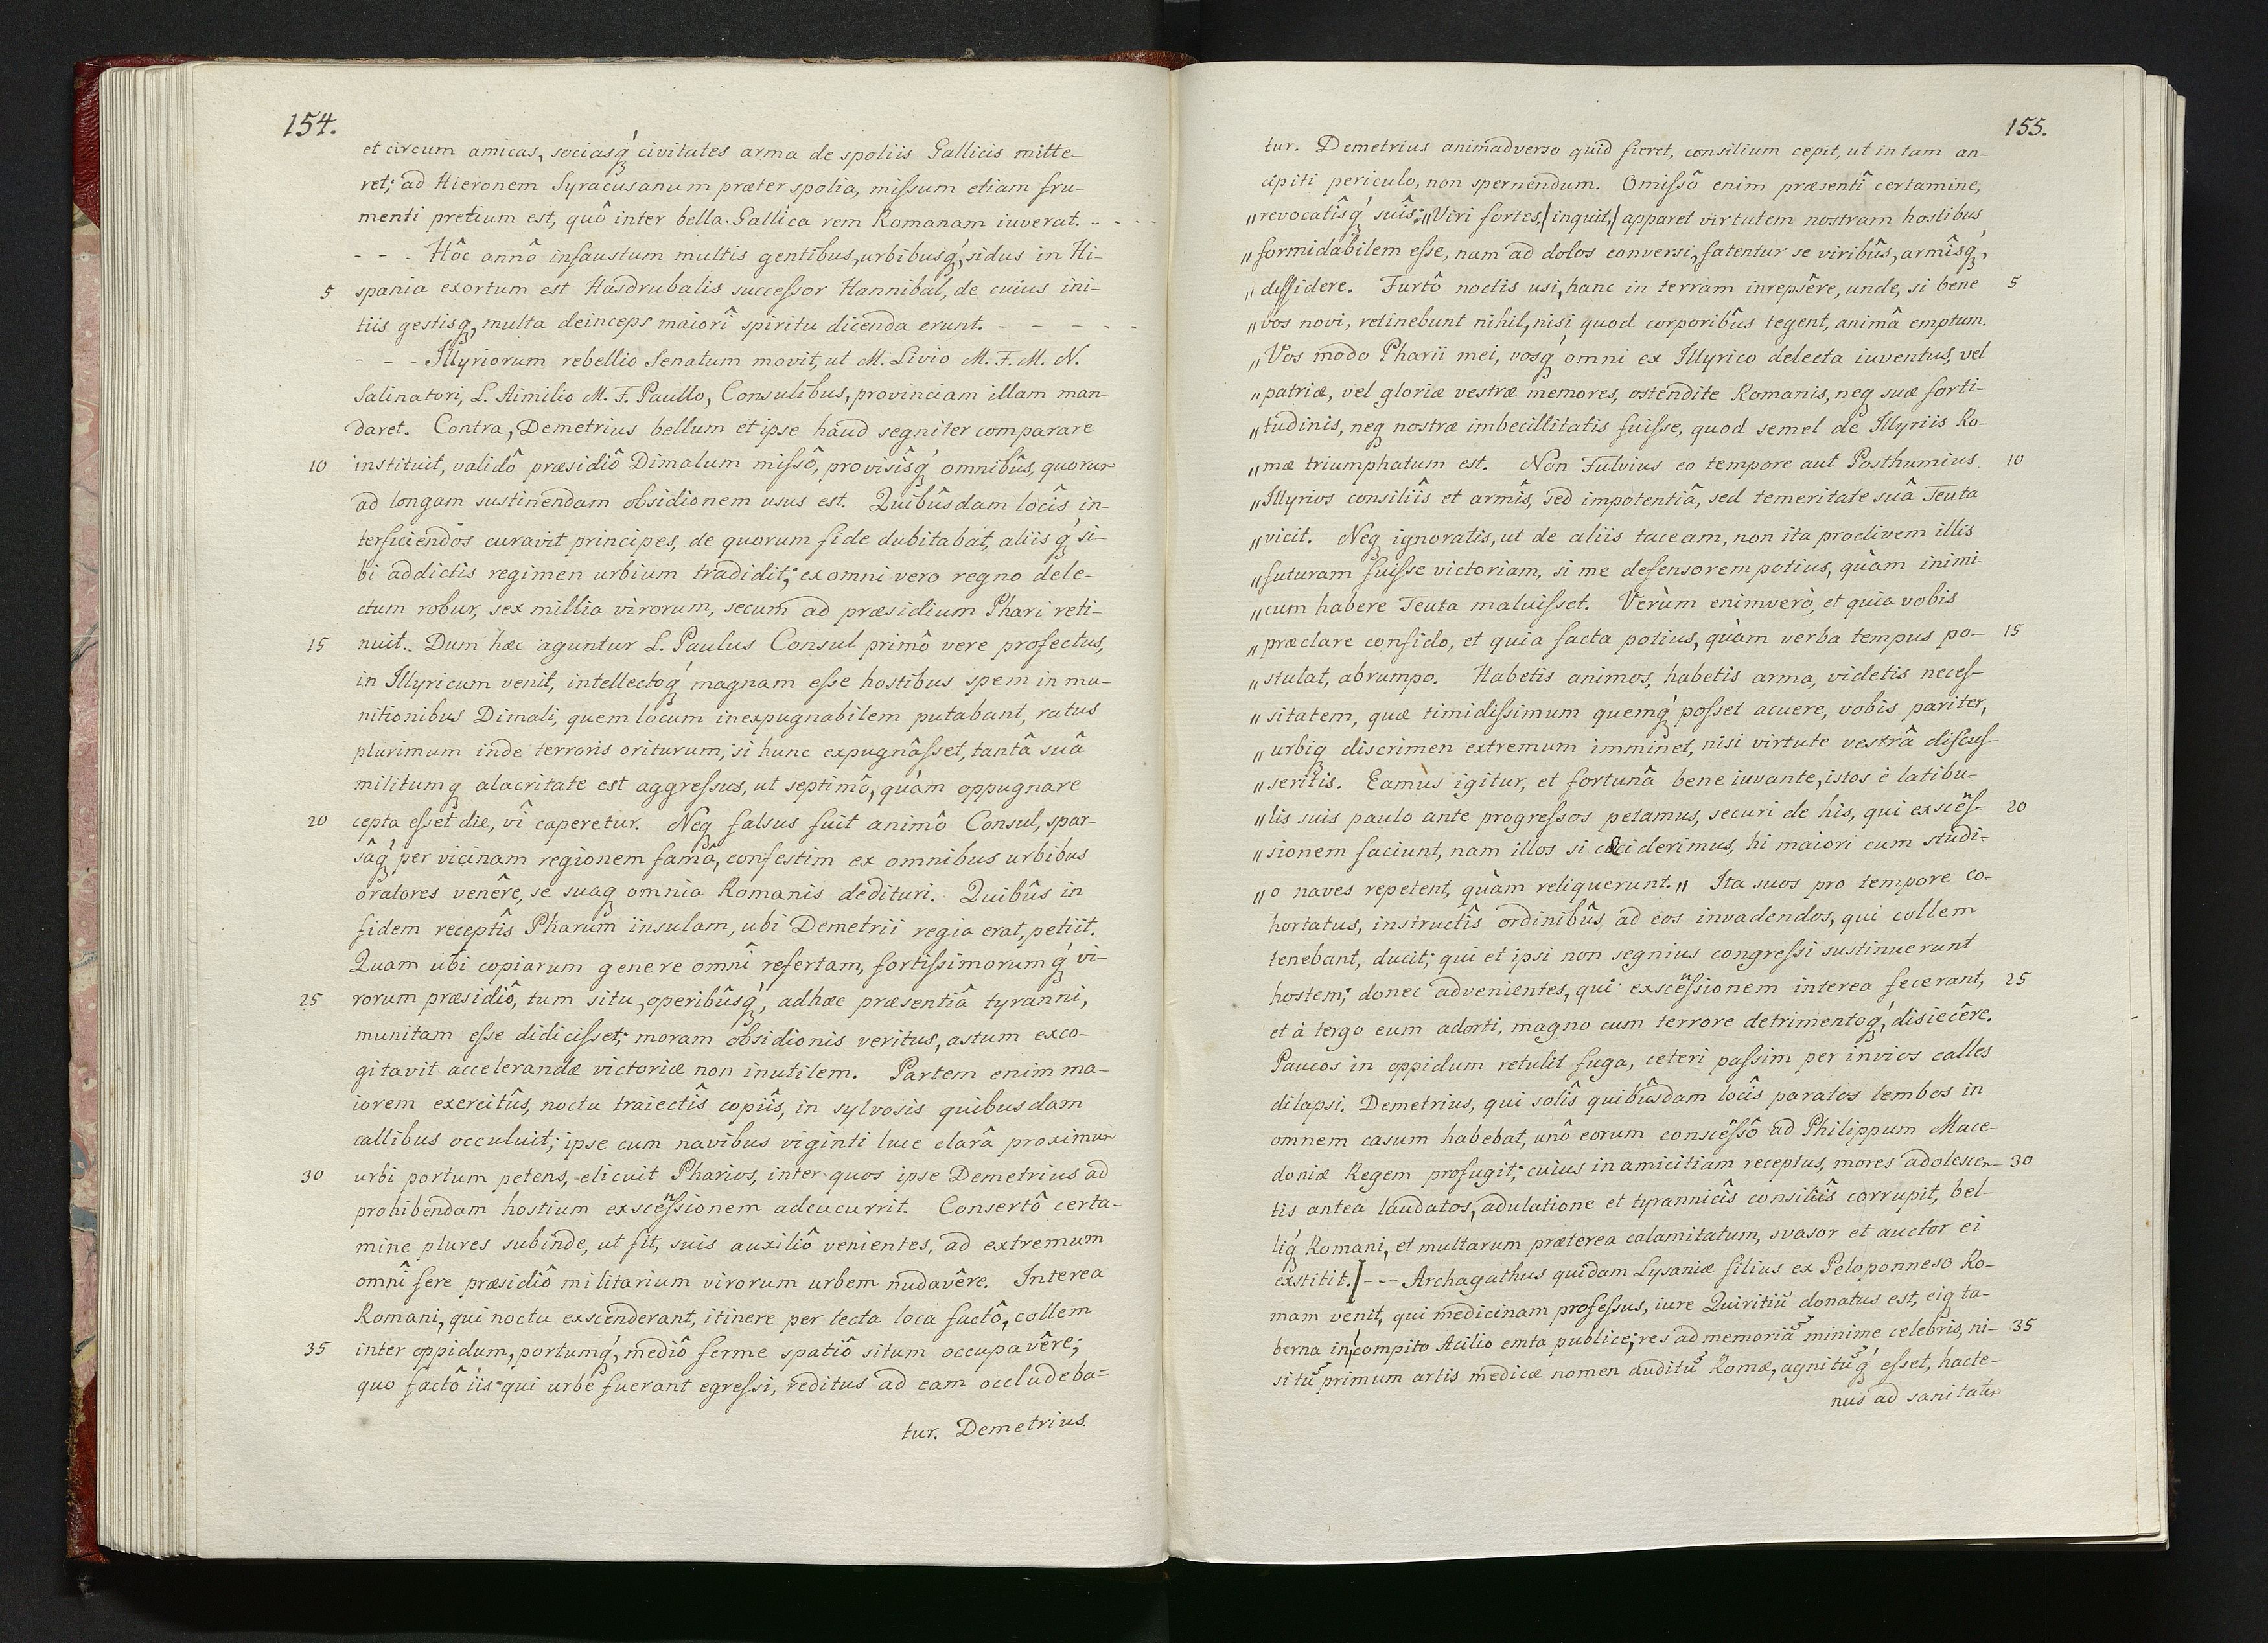 154.
et circum amicas, sociasq́ civitates arma de spoliis Gallicis mitte-
ret; ad Hieronem Syracusanum præter spolia, missum etiam fru-
menti pretium est, quô inter bella Gallica rem Romanam iuverat. - - - -
- - - Hôc annô infaustum multis gentibus, urbibusq́, sidus in Hi-
5 spania exortum est Hasdrubalis successor Hannibal, de cuius ini-
tiis gestisq, multa deinceps maiorî spiritu dicenda erunt. - - - - -
- - - Illyriorum rebellio Senatum movit, ut M. Livio M. F. M. N.
Salinatori, L. Aimilio M. F. Paullo, Consulibus, provinciam illam man-
daret. Contra, Demetrius bellum et ipse haud segniter comparare
10 instituit, validô præsidiô Dimalum missô, provisîsq́ omnibûs, quorum
ad longam sustinendam obsidionem usus est. Quibûsdam locîs in-
terficiendos curavit principes, de quorum fide dubitabat, aliis q́ si-
bi addictis regimen urbium tradidit; ex omni vero regno dele-
ctum robur, sex millia virorum, secum ad præsidium Phari reti-
15 nuit. Dum hæc aguntur L. Paulus Consul primô vere profectus,
in Illyricum venit, intellectoq́ magnam esse hostibus spem in mu-
nitionibus Dimali, quem locum inexpugnabilem putabant, ratus
plurimum inde terroris oriturum, si hunc expugnâsset, tantâ suâ
militumq alacritate est aggressus, ut septimô, quàm oppugnare
20 cepta esset die, vî caperetur. Neq falsus fuit animô Consul, spar-
sâq́ per vicinam regionem famâ, confestim ex omnibus urbibus
oratores venêre, se suaq omnia Romanis dedituri. Quibûs in
fidem receptîs Pharum iinsulam, ubi Demetrii regia erat, petiit.
Quam ubi copiarum genere omnî refertam, fortissimorumq́ vi-
25 rorum præsidiô, tum situ, operibûsq́, adhæc præsentiâ tyranni,
munitam esse didicisset; moram obsidionis veritus, astum exco-
gitavit accelerandæ victoriæ non inutilem. Partem enim ma-
iorem exercitûs, noctu traiectîs copiîs, in sylvosis quibusdam
callibus occuluit; ipse cum navibus viginti luce clarâ proximum
30 urbi portum petens, elicuit Pharios, inter quos ipse Demetrius ad
prohibendam hostium exscënsionem adcucurrit. Consertô certa-
mine plures subinde, ut fit, suis auxiliô venientes, ad extremum
omnî fere præsidiô militarium virorum urbem nudavêre. Interea
Romani, qui noctu exscenderant, itinere per tecta loca factô, collem
35 inter oppidum, portumq́, mediô ferme spatiô situm occupavêre;
quo factô iis qui urbê fuerant egressi, reditus ad eam occludeba=
tur. Demetrius.
155.
tur. Demetrius animadverso quid fieret, consilium cepit, ut in tam an-
cipiti periculo, non spernendum. Omissô enim præsentî certamine,
„revocatîsq́ suîs: „Viri fortes, /inquit,/ apparet virtutem nostram hostibus
„formidabilem esse, nam ad dolos conversi, fatentur se viribûs, armîsq́,
„dessidere. Furtô noctis usi, hanc in terram inrepsêre, unde, si bene 5
„vos novi, retinebunt nihil, nisi quod corporibûs tegent, animâ emptum.
„Vos modo Pharii mei, vosq́ omni ex Illyrico delecta iuventus, vel
„patriæ, vel gloriæ vestræ memores, ostendite Romanis, neq suæ forti-
„tudinis, neq nostræ imbecillitatis fuisse, quod semel de Illyriis Ro-
„mæ triumphatum est. Non Fulvius eo tempore aut Posthumius 10
„Illyrios consiliîs et armîs, sed impotentiâ, sed temeritate suâ Teuta
„vicit. Neq ignoratis, ut de aliis taceam, non ita proclivem illis
„futuram fuisse victoriam, si me defensorem potius, quàm inimi-
„cum habere Teuta maluisset. Verùm enimverò, et quia vobis
„præclare confido, et quia facta potius, quàm verba tempus po- 15
„stulat, abrumpo. Habetis animos, habetis arma, videtis neces-
„sitatem, quæ timidissimum quemq́ posset acuere, vobis pariter,
„urbiq discrimen extremum imminet, nisi virtute vestrâ discus-
„seritis. Eamus igitur, et fortunâ bene iuvante, istos è latibu-
„lis suis paulo ante progressos petamus, securi de his, qui exscëns- 20
„sionem faciunt, nam illos si ceciderimus, hi maiori cum studi-
„o naves repetent, quàm reliquerunt.„ Ita suos pro tempore co-
hortatus, instructîs ordinibûs, ad eos invadendos, qui collem
tenebant, ducit; qui et ipsi non segnius congressi sustinuerunt
hostem; donec advenientes, qui exscënsionem interea fecerant, 25
et à tergo eum adorti, magno cum terrore detrimentoq́, disiecêre.
Paucos in oppidum retulit fuga, ceteri passim per invios calles
dilapsi. Demetrius, qui solîs quibûsdam locîs paratos lembos in
omnem casum habebat, unô eorum conscënsô ad Philippum Mace-
doniæ Regem profugit; cuius in amicitiam receptus, mores adolescen- 30
tis antea laudatos, adulatione et tyrannicîs consiliîs corrupit, bel-
liq́ Romani, et multarum præterea calamitatum, svasor et auctor ei
exstitit.] - - - Archagathus quidam Lysaniæ filius ex Peloponneso Ro-
mam venit, qui medicinam professus, iure Quiritiũ donatus est, eiq ta-
berna in compito Acilio emta publice; res ad memoriã minime celebris, ni- 35
si tũ primum artis medicæ nomen auditũ Romæ, agnitũq́ esset, hacte-
nus ad sanitatem